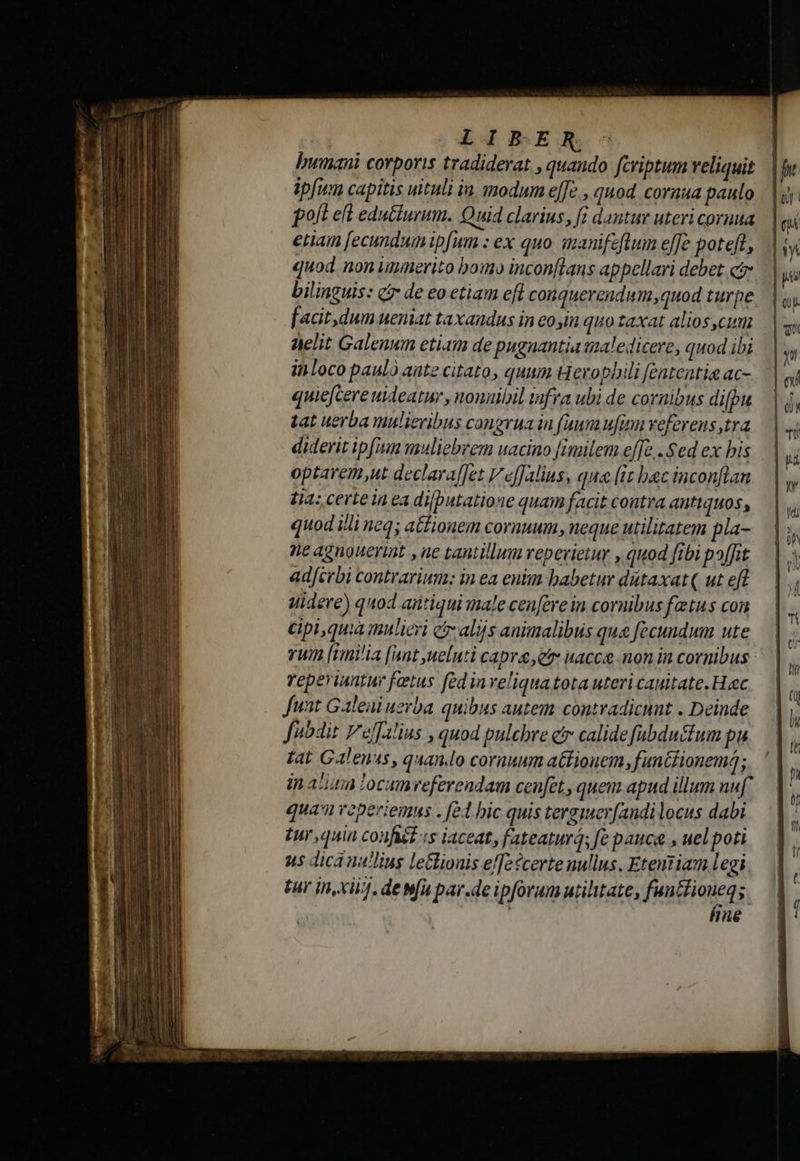 LIBER
humani corporis tradiderat, quando scriptum reliquit
ipsum capitis uituli in modum esse, quod cornua paulo
post est educturum. Quid clarius, si dantur uteri cornua
etiam secundum ipsum: ex quo manifestum esse potest,
quod non immerito homo inconstans appellari debet &
bilinguis: & de eo etiam est conquerendum, quod turpe
facit, dum ueniat taxandus in eo, in quo taxat alios, cum
uelit Galenum etiam de pugnantia maledicere, quod ibi
in loco paulò ante citato, quum Herophili sententiæ ac-
quiescere uideatur, nonnihil infra ubi de cornibus dispu
tat uerba mulieribus congrua in suum usum referens, tra
diderit ipsum muliebrem uacino similem esse. Sed ex his
optarem, ut declarasset Vessalius, quæ sit hæc inconstan
tia: certe in ea disputatione quam facit contra antiquos,
quod illi neq; actionem cornuum, neque utilitatem pla-
ne agnouerint, ne tantillum reperietur, quod sibi possit
adscrbi contrarium: in ea enim habetur dūtaxat ( ut est
uidere) quod antiqui male censere in cornibus fœtus con
cipi, quia mulieri & alijs animalibus quæ secundum ute
rum similia sunt, ueluti capræ, & uaccæ non in cornibus
reperiuntur fœtus sed in reliqua tota uteri cauitate. Hæc
sunt Galeni uerba quibus autem contradicunt. Deinde
subdit Vessalius, quod pulchre & calide subductum pu
tat Galenus, quando cornuum actionem, functionemq;
in aliam locum referendam censet, quem apud illum nus
quam reperiemus. sed hic quis tergiuersandi locus dabi
tur, quin conflictus iaceat, fateaturq; se pauca, uel poti
us dicā nullius lectionis esse? certe nullus. Etenīiam legi
tur in, xiiij. de usu par. de ipsorum utilitate, functioneq;
fine